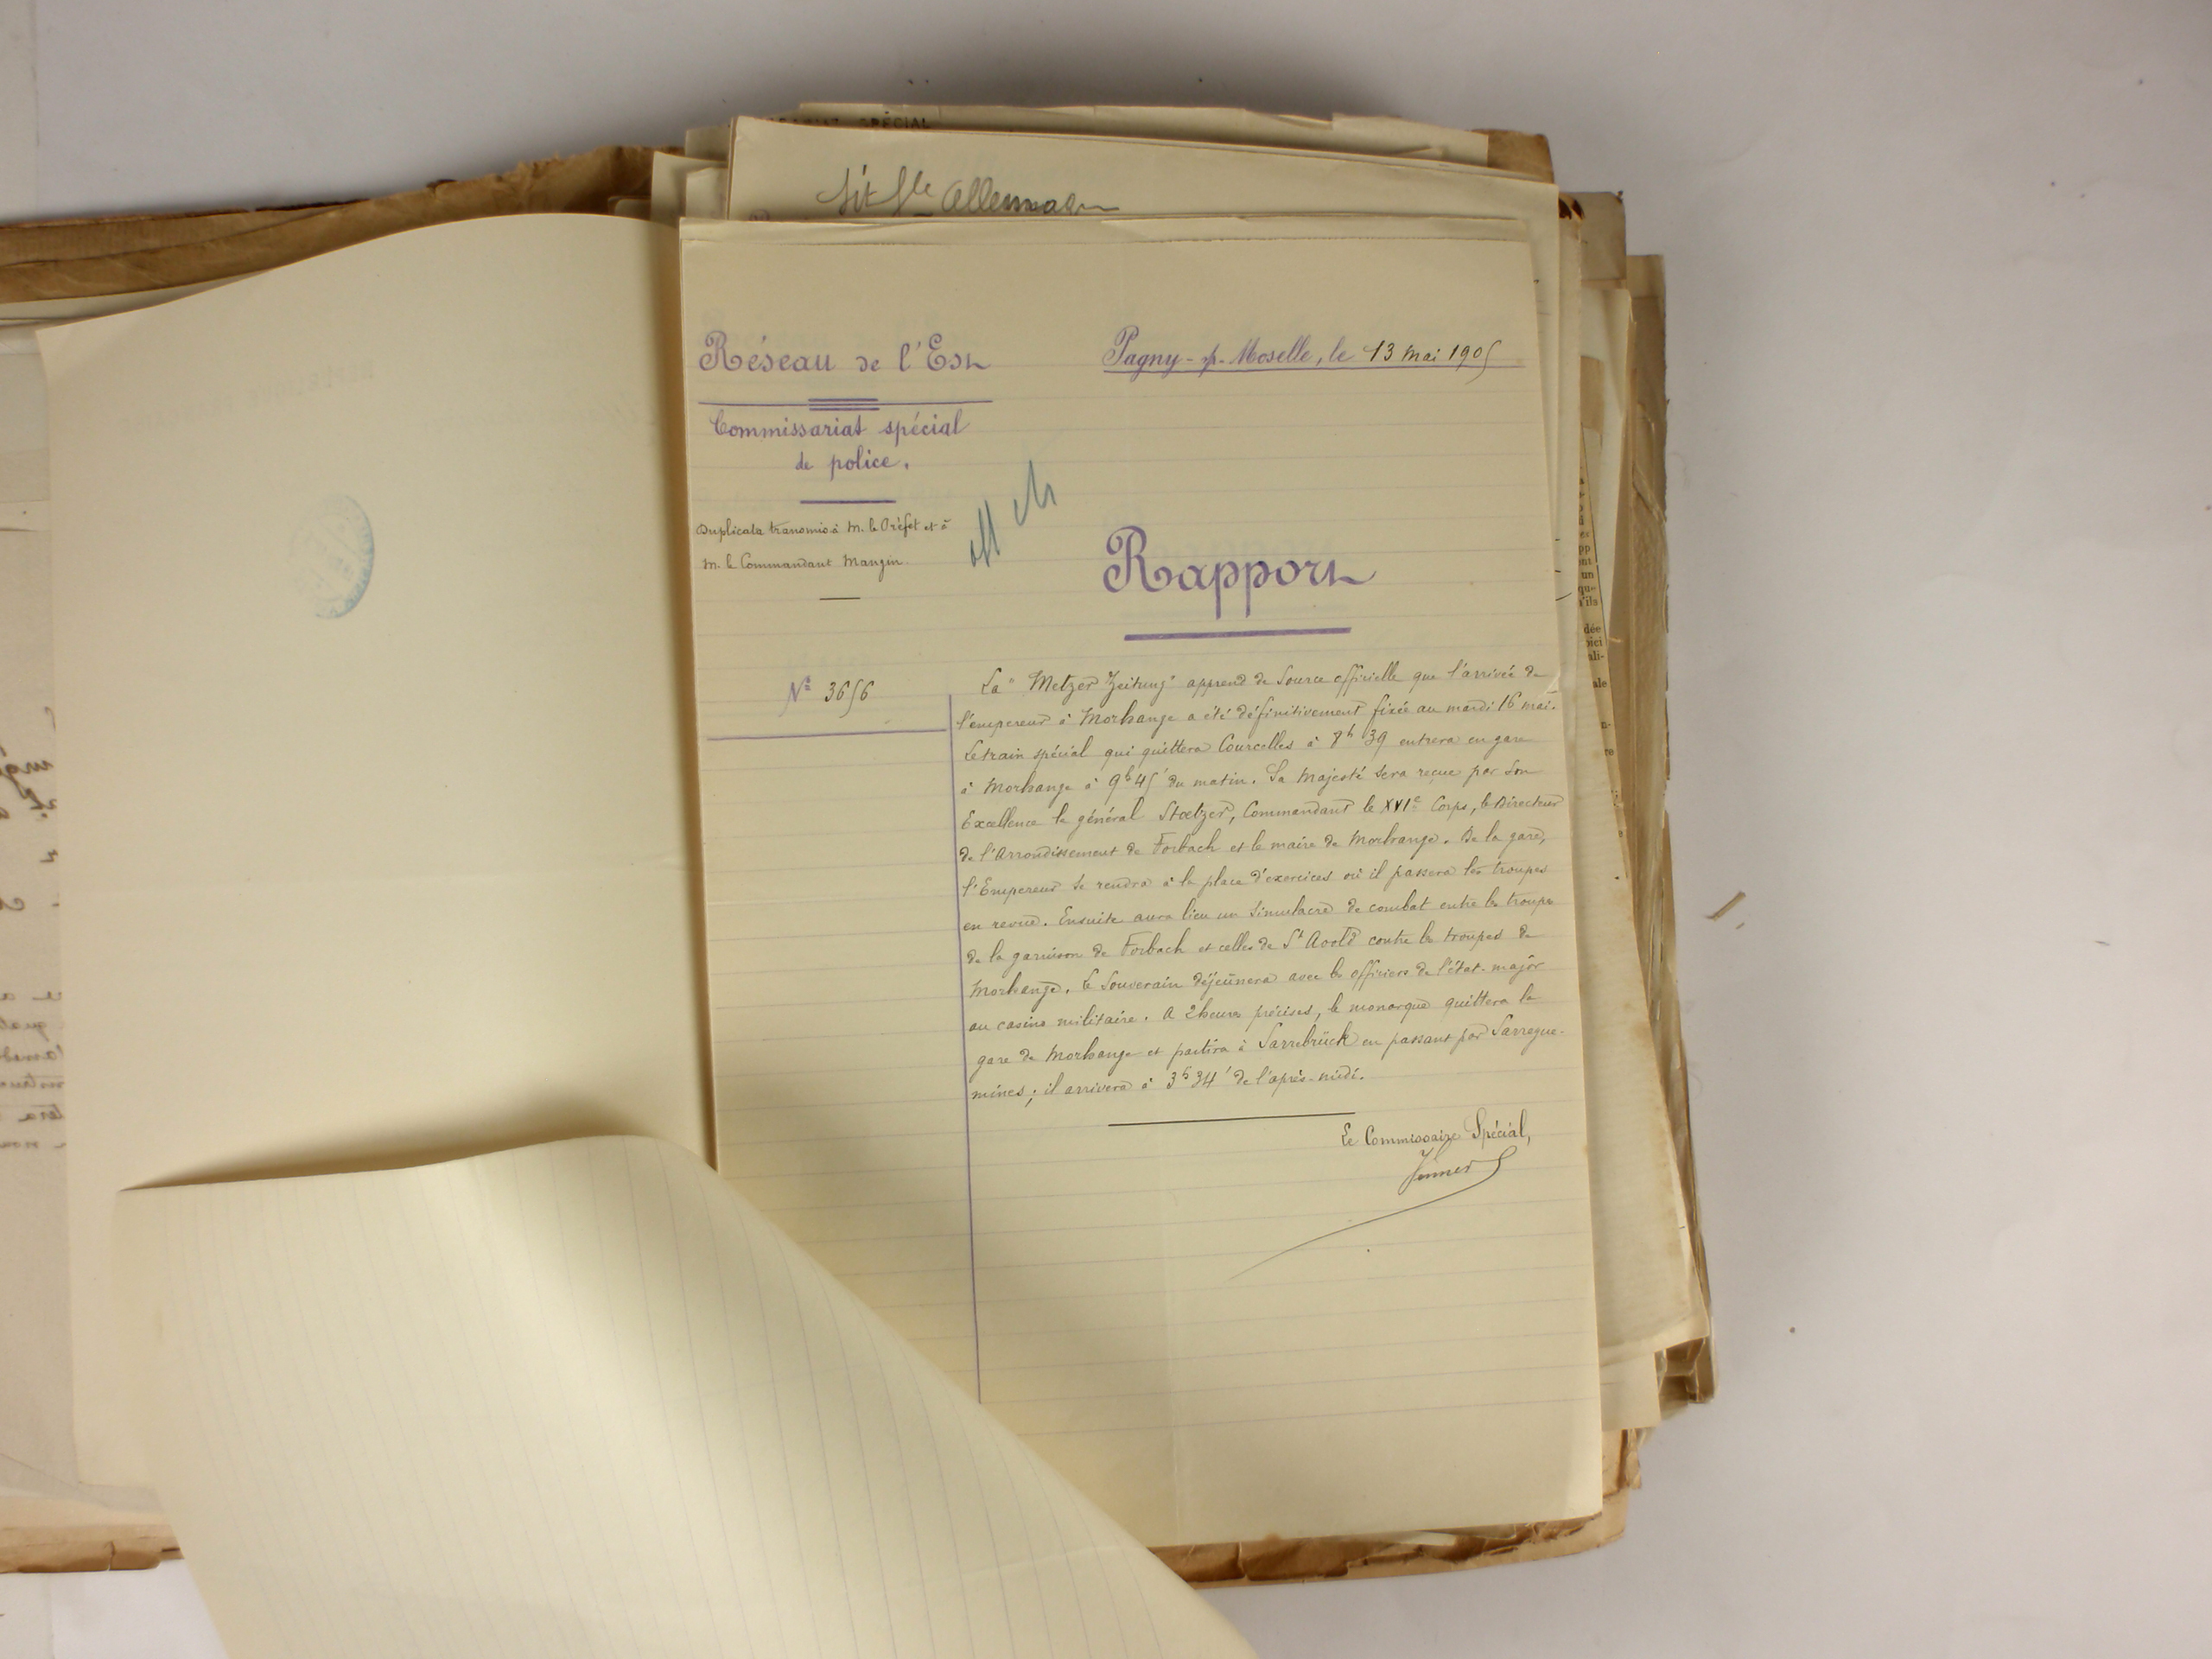 SPÉCIAL
Sit Gle Allemagne
Réseau de l'Est
Pagny-s/-Moselle, le 13 mai 1905
Commissariat spécial
de police.
Duplicata transmis à M. le Préfet et à
M. le Commandant Mangin.
Rapport
N° 3656
La "Metzer Zeitung" apprend de source officielle que l'arrivée de
l'empereur à Morhange a été définitivement fixée au mardi 16 mai.
Le train spécial qui quittera Courcelles à 8h 39 entrera en gare
à Morhange à 9h 45' du matin. Sa Majesté sera reçue par Son
Excellence le général Stoetzer, Commandant le XVIe Corps, le Directeur
de l'Arrondissement de Forbach et le maire de Morhange. De la gare,
l'Empereur se rendra à la place d'exercices où il passera les troupes
en revue. Ensuite aura lieu un simulacre de combat entre les troupes
de la garnison de Forbach et celles de St Avold contre les troupes de
Morhange. Le Souverain déjeûnera avec les officiers de l'état-major
au casino militaire. A 2 heures précises, le monarque quittera la
gare de Morhange et partira à Sarrebrück en passant par Sarregue-
mines; il arrivera à 3h 34' de l'après-midi.
Le Commissaire Spécial,